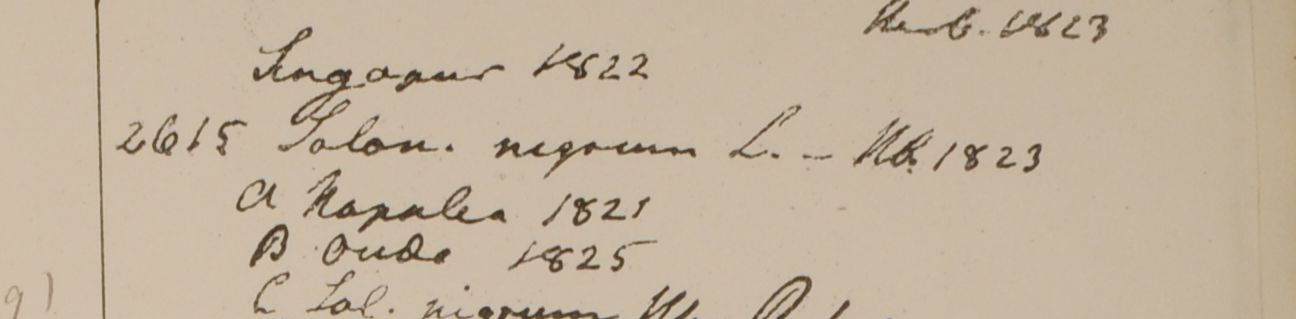 Hb. 1823
Singapur 1822
2615 Solan. nigrum L. - Hb. 1823
A Napalea 1821
B Oude 1825
C Sol. nigrum Hb.
9)